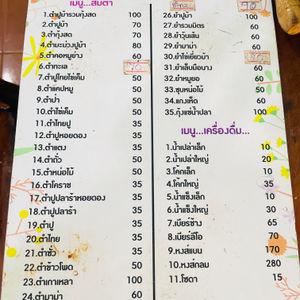 เมนู...ส้มตำ
1.ตำปูม้ารวมกุ้งสด 100
2.ตำปูม้า 70
3.ตำกุ้งสด 80
4.ตำมะม่วงปูม้า 80
5.ตำคอหมูย่าง 60
6.ตำทะเล
7.ตำปูไทยไข่เค็ม 50
8.ตำแคปหมู 50
9.ตำป่า 50
10.ตำไข่เค็ม 50
11.ตำไทยปู 35
12.ตำปูหอยดอง 35
13.ตำแตง 35
14.ตำถั่ว 35
15.ตำหน่อไม้ 50
16.ตำโคราช 35
17.ตำปูปลาร้าหอยดอง 35
18.ตำปูปลาร้า 35
19.ตำปู 35
20.ตำไทย 35
21.ตำซั่ว 35
22.ตำข้าวโพด 50
23.ตำเกาเหลา 100
24.ตำมาม่า 60
26.ยำปูม้า 100
27.ยำรวมมิตร 60
28.ยำวุ้นเส้น 60
29.ยำมาม่า 60
30.ยำไข่เยี่ยวม้า 60
31.ยำเล็บมือนาง 60
32.ยำหมูยอ 60
33.ซุบหน่อไม้ 50
34.แกงเห็ด 60
35.กุ้งแช่น้ำปลา 100
เมนู...เครื่องดื่ม...
1.น้ำเปล่าเล็ก 10
2.น้ำเปล่าใหญ่ 20
3.โค้กเล็ก 20
4.โค้กใหญ่ 35
5.น้ำแข็งเล็ก 10
6.น้ำแข็งใหญ่ 30
7.เบียร์ช้าง 65
8.เบียร์ลีโอ 70
9.หงส์แบน 170
10.หงส์กลม 280
11.โซดา 15